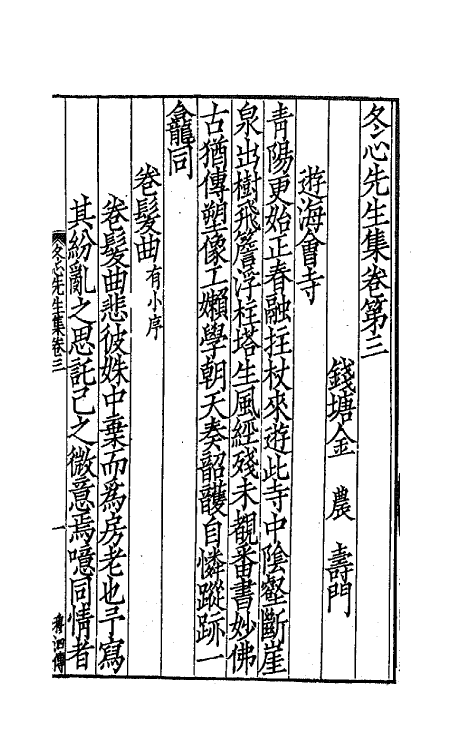 冬心先生集卷第三
錢塘金　農　壽門
遊海會寺
青陽更始正春融拄杖來遊此寺中陰壑斷崖
泉出樹飛簷浮柱塔生風經殘未覩番書妙佛
古猶傳塑像工嬾學朝天奏韶頀自憐蹤跡一
龕龍同
卷髮曲有小序
卷髮曲悲彼姝中棄而爲房老也予寫
其紛亂之思託己之微意焉噫同情者
冬心先生集卷三
一